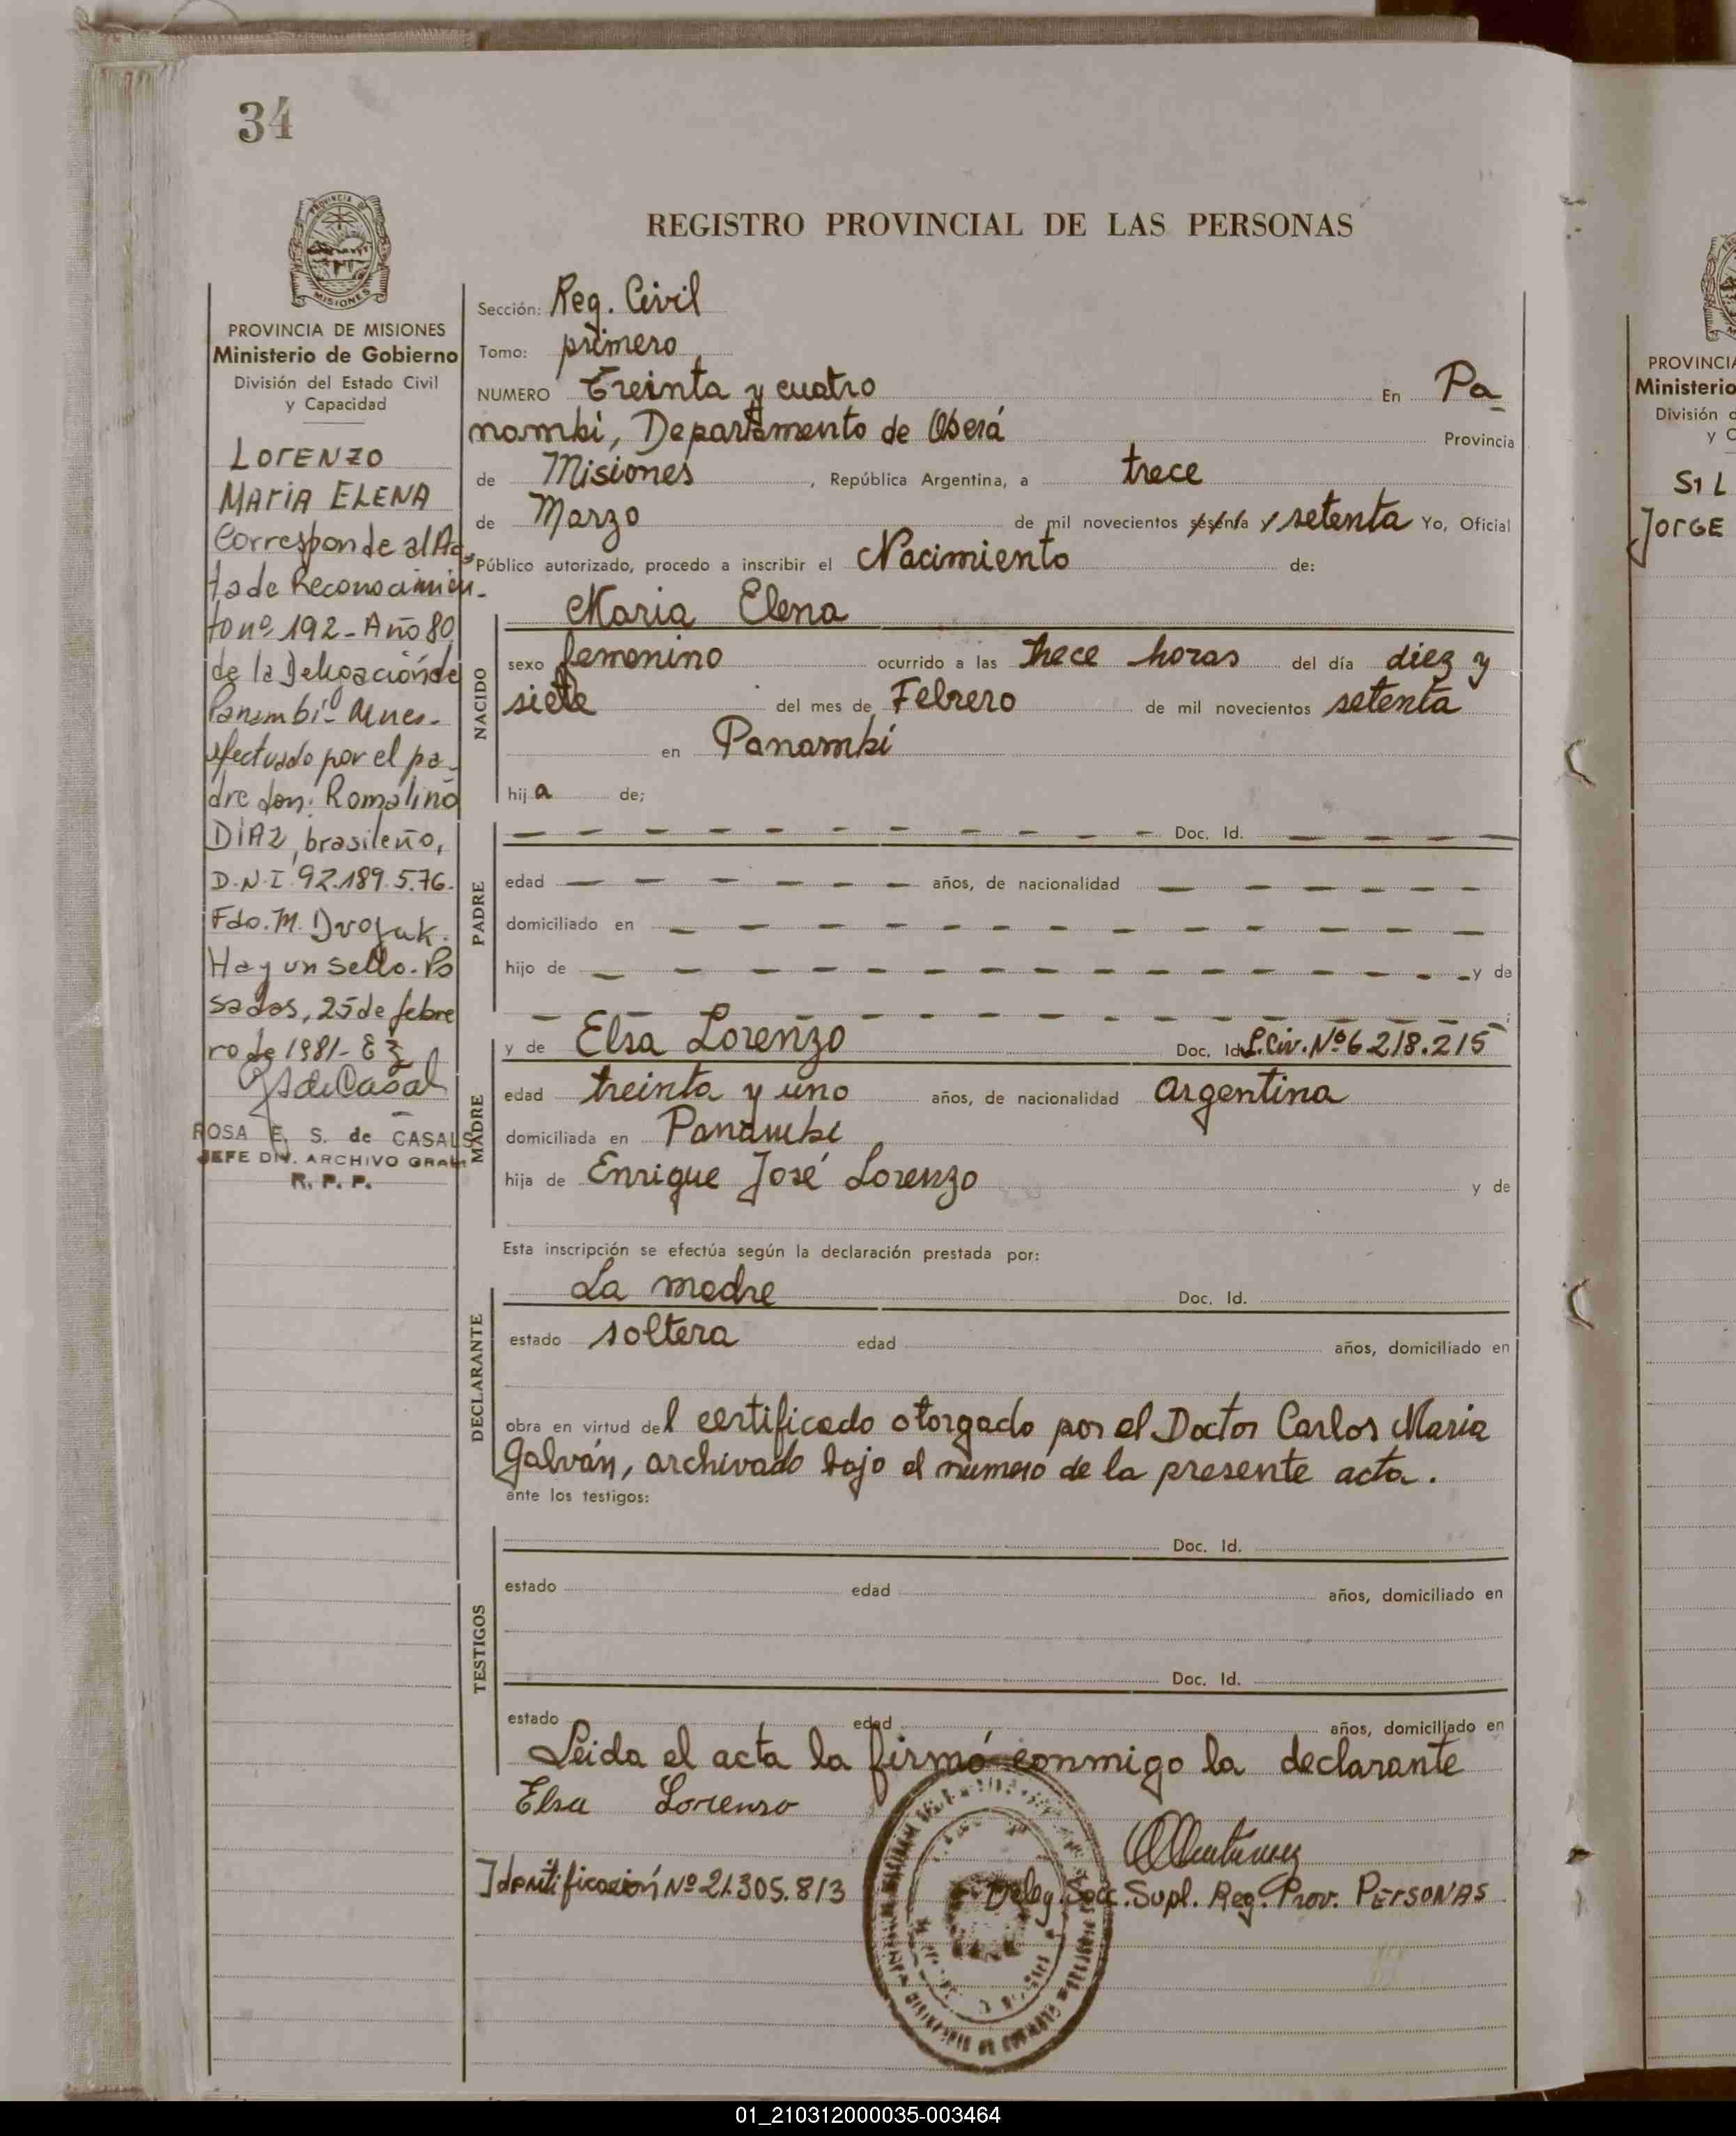 34
PROVINCIA DE
MISIONES
PROVINCIA DE MISIONES
Ministerio de Gobierno
División del Estado Civil
y Capacidad
LORENZO
MARIA ELENA
Corresponde al Ac
ta de Reconocimien-
to nº 192 - Año 80
de la Delegación de
Panambí-
efectuado por el pa-
dre don: Romalino
DIAZ, brasileño,
D.N.I. 92.189.576.
Fdo. M. Dvojak.
Hay un sello. Po
sadas, 25 de febre
ro de 1981-
ROSA E. S. de CASALS
JEFE DIV. ARCHIVO GRAL.
R. P. P.
REGISTRO PROVINCIAL DE LAS PERSONAS
Sección: Reg. Civil
Tomo: primero
NUMERO Treinta y cuatro En Pa-
nambí, Departamento de Oberá Provincia
de Misiones, República Argentina, a trece
de Marzo de mil novecientos sesenta y setenta Yo, Oficial
Público autorizado, procedo a inscribir el Nacimiento de:
Maria Elena
NACIDO
sexo femenino ocurrido a las trece horas del día diez y
siete del mes de Febrero de mil novecientos setenta
en Panambí
hija de;
PADRE
Doc. Id.
edad años, de nacionalidad
domiciliado en
hijo de y de
MADRE
y de Elsa Lorenzo Doc. Id. L.Civ. Nº 6.218.215
edad treinta y uno años, de nacionalidad argentina
domiciliada en Panambí
hija de Enrique José Lorenzo y de
Esta inscripción se efectúa según la declaración prestada por:
DECLARANTE
La madre Doc. Id.
estado soltera edad años, domiciliado en
obra en virtud del certificado otorgado por el Doctor Carlos Maria
Galván, archivado bajo el número de la presente acta.
ante los testigos:
TESTIGOS
Doc. Id.
estado edad años, domiciliado en
Doc. Id.
estado edad años, domiciliado en
Leida el acta la firmó conmigo la declarante
Elsa Lorenzo
Identificación Nº 21.305.813
Deleg. Secc. Supl. Reg. Prov. PERSONAS
PROVINCIA
Ministerio
División d
y C
SIL
JORGE
01_210312000035-003464